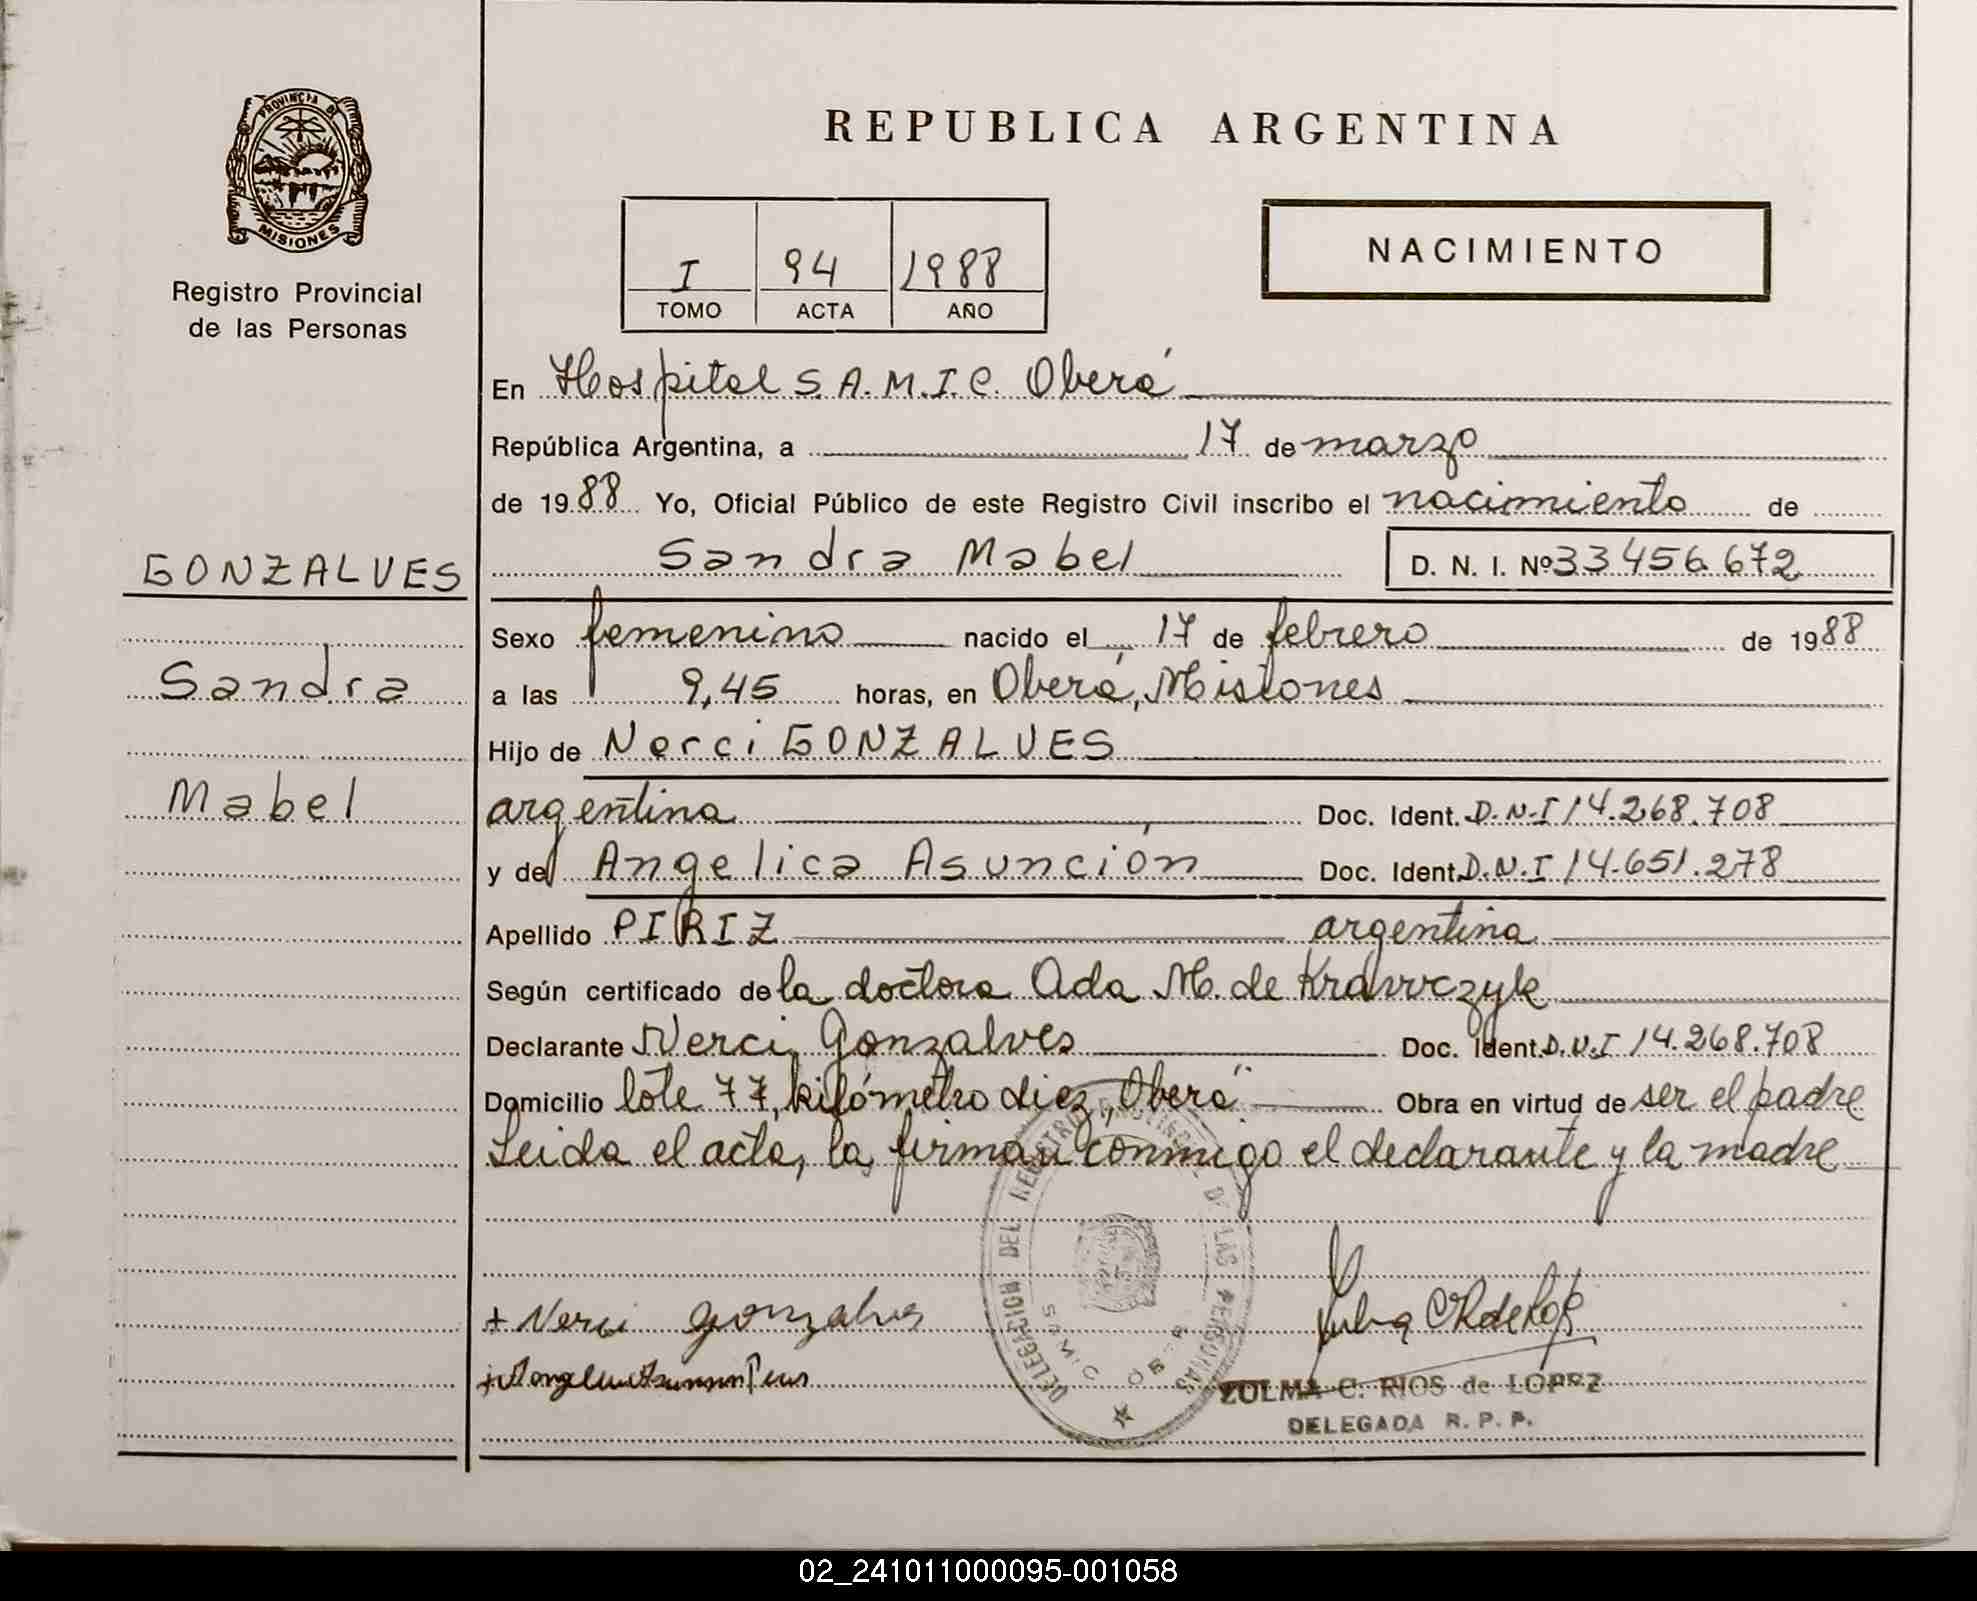 PROVINCIA DE
MISIONES
Registro Provincial
de las Personas
REPUBLICA ARGENTINA
I 94 1988
TOMO ACTA AÑO
NACIMIENTO
En Hospital S.A.M.I.C. Oberá
República Argentina, a 17 de marzo
de 1988 Yo, Oficial Público de este Registro Civil inscribo el nacimiento de
GONZALVES
Sandra Mabel D. N. I. Nº 33456.672
Sexo femenino nacido el 17 de febrero de 1988
Sandra
a las 9,45 horas, en Oberá, Misiones
Hijo de Nerci GONZALVES
Mabel
argentina Doc. Ident. D.N.I 14.268.708
y de Angélica Asunción Doc. Ident. D.N.I 14.651.278
Apellido PIRIZ argentina
Según certificado de la doctora Ada M. de Krawczyk
Declarante Nerci Gonzalves Doc. Ident. D.N.I 14.268.708
Domicilio lote 77, kilómetro diez, Oberá Obra en virtud de ser el padre
Leida el acta, la firman conmigo el declarante y la madre
DELEGACION DEL REGISTRO PROVINCIAL DE LAS PERSONAS
+ Nerci gonzalves
ZULMA C. RIOS de LOPEZ
DELEGADA R. P. P.
02_241011000095-001058